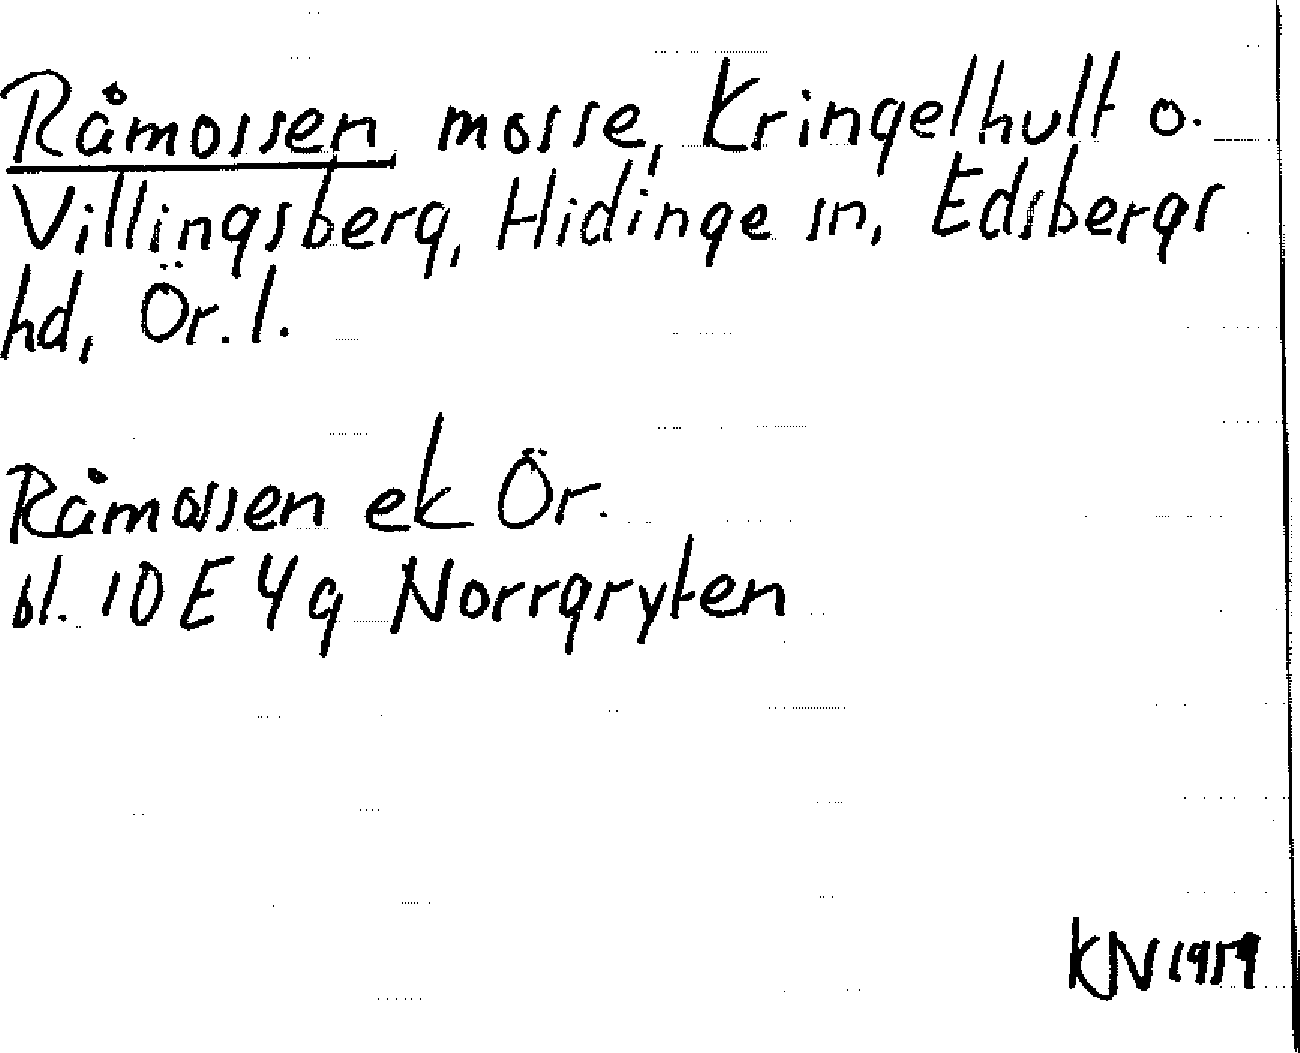 Råmossen mosse, Kringelhult o.
Villingsberg, Hidinge sn, Edsbergs
hd, Ör. l.
Råmossen ek Ör.
bl. 10 E 4 g Norrgryten
KN 1959